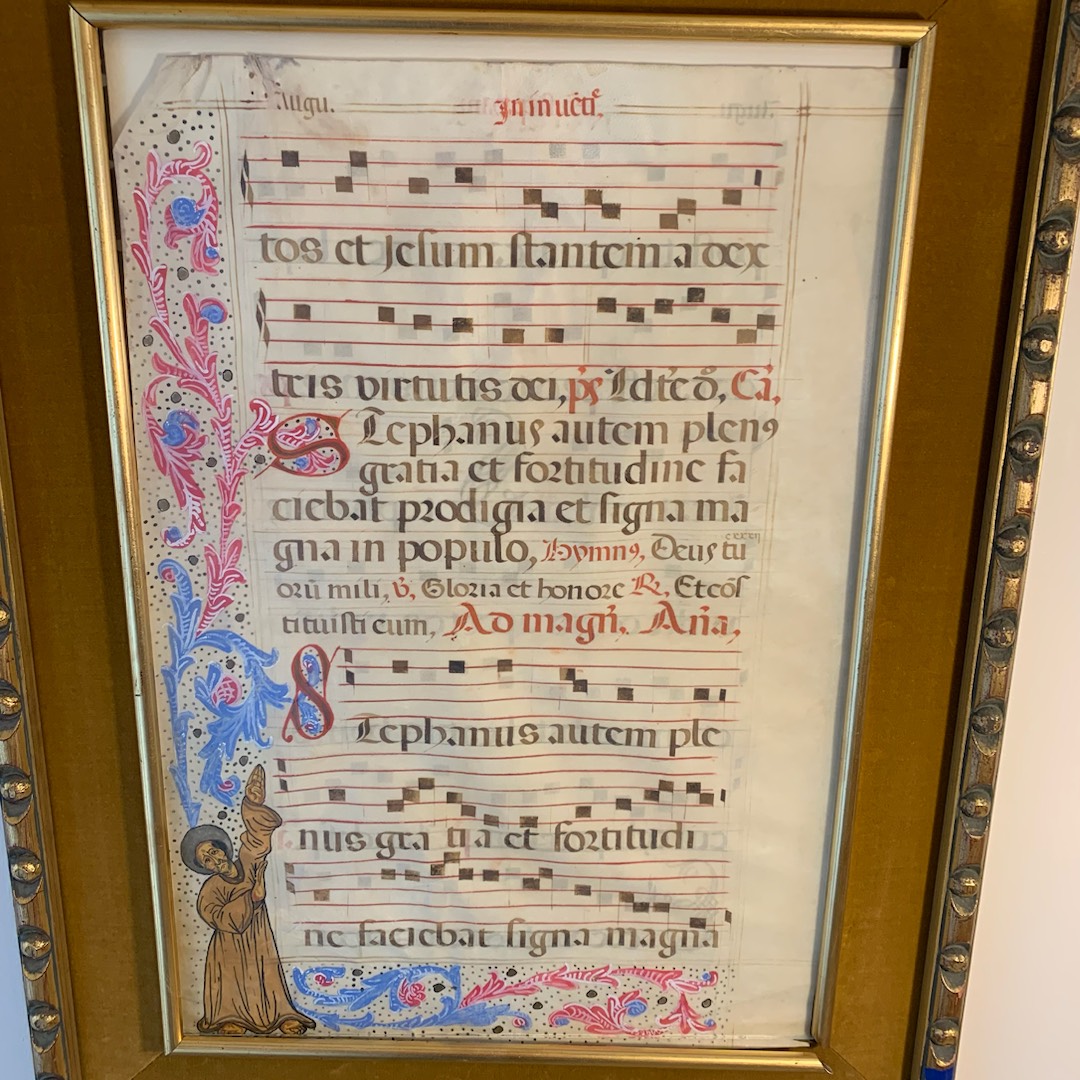 Augu. In inuētē.
tos et Jesum stantem a dex
tris virtutis dei, ps Idtēō, Ca,
Stephanus autem plenꝰ
gratia et fortitudine fa
ciebat prodigia et signa ma
gna in populo, Hymnꝰ, Deus tu
orū mili, v, Gloria et honore R, Et cōs
tituisti eum, Ad magñ, Aña,
Stephanus autem ple
nus gra tia et fortitudi
ne faciebat signa magna